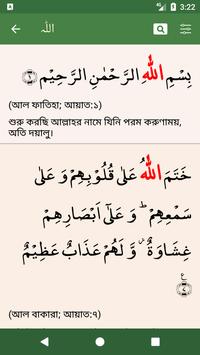 3:22
اللّٰہ
بِسْمِ اللّٰهِ الرَّحْمٰنِ الرَّحِيْمِ
(আল ফাতিহা; আয়াত:১)
শুরু করছি আল্লাহর নামে যিনি পরম করুণাময়,
অতি দয়ালু।
خَتَمَ اللّٰهُ عَلٰى قُلُوْبِهِمْ وَ عَلٰى
سَمْعِهِمْ ؕ وَ عَلٰۤى اَبْصَارِهِمْ
غِشَاوَةٌ ؗ وَّ لَهُمْ عَذَابٌ عَظِيْمٌ
(আল বাকারা; আয়াত:৭)